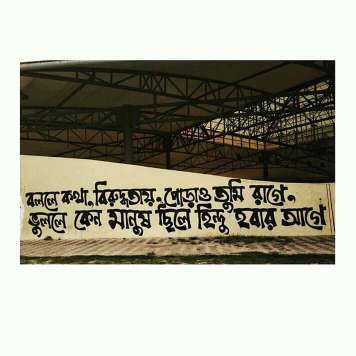 বললে কথা, বিরুদ্ধতায়, পোড়াও তুমি রাগে,
ভুললে কেন মানুষ ছিলে হিন্দু হবার আগে